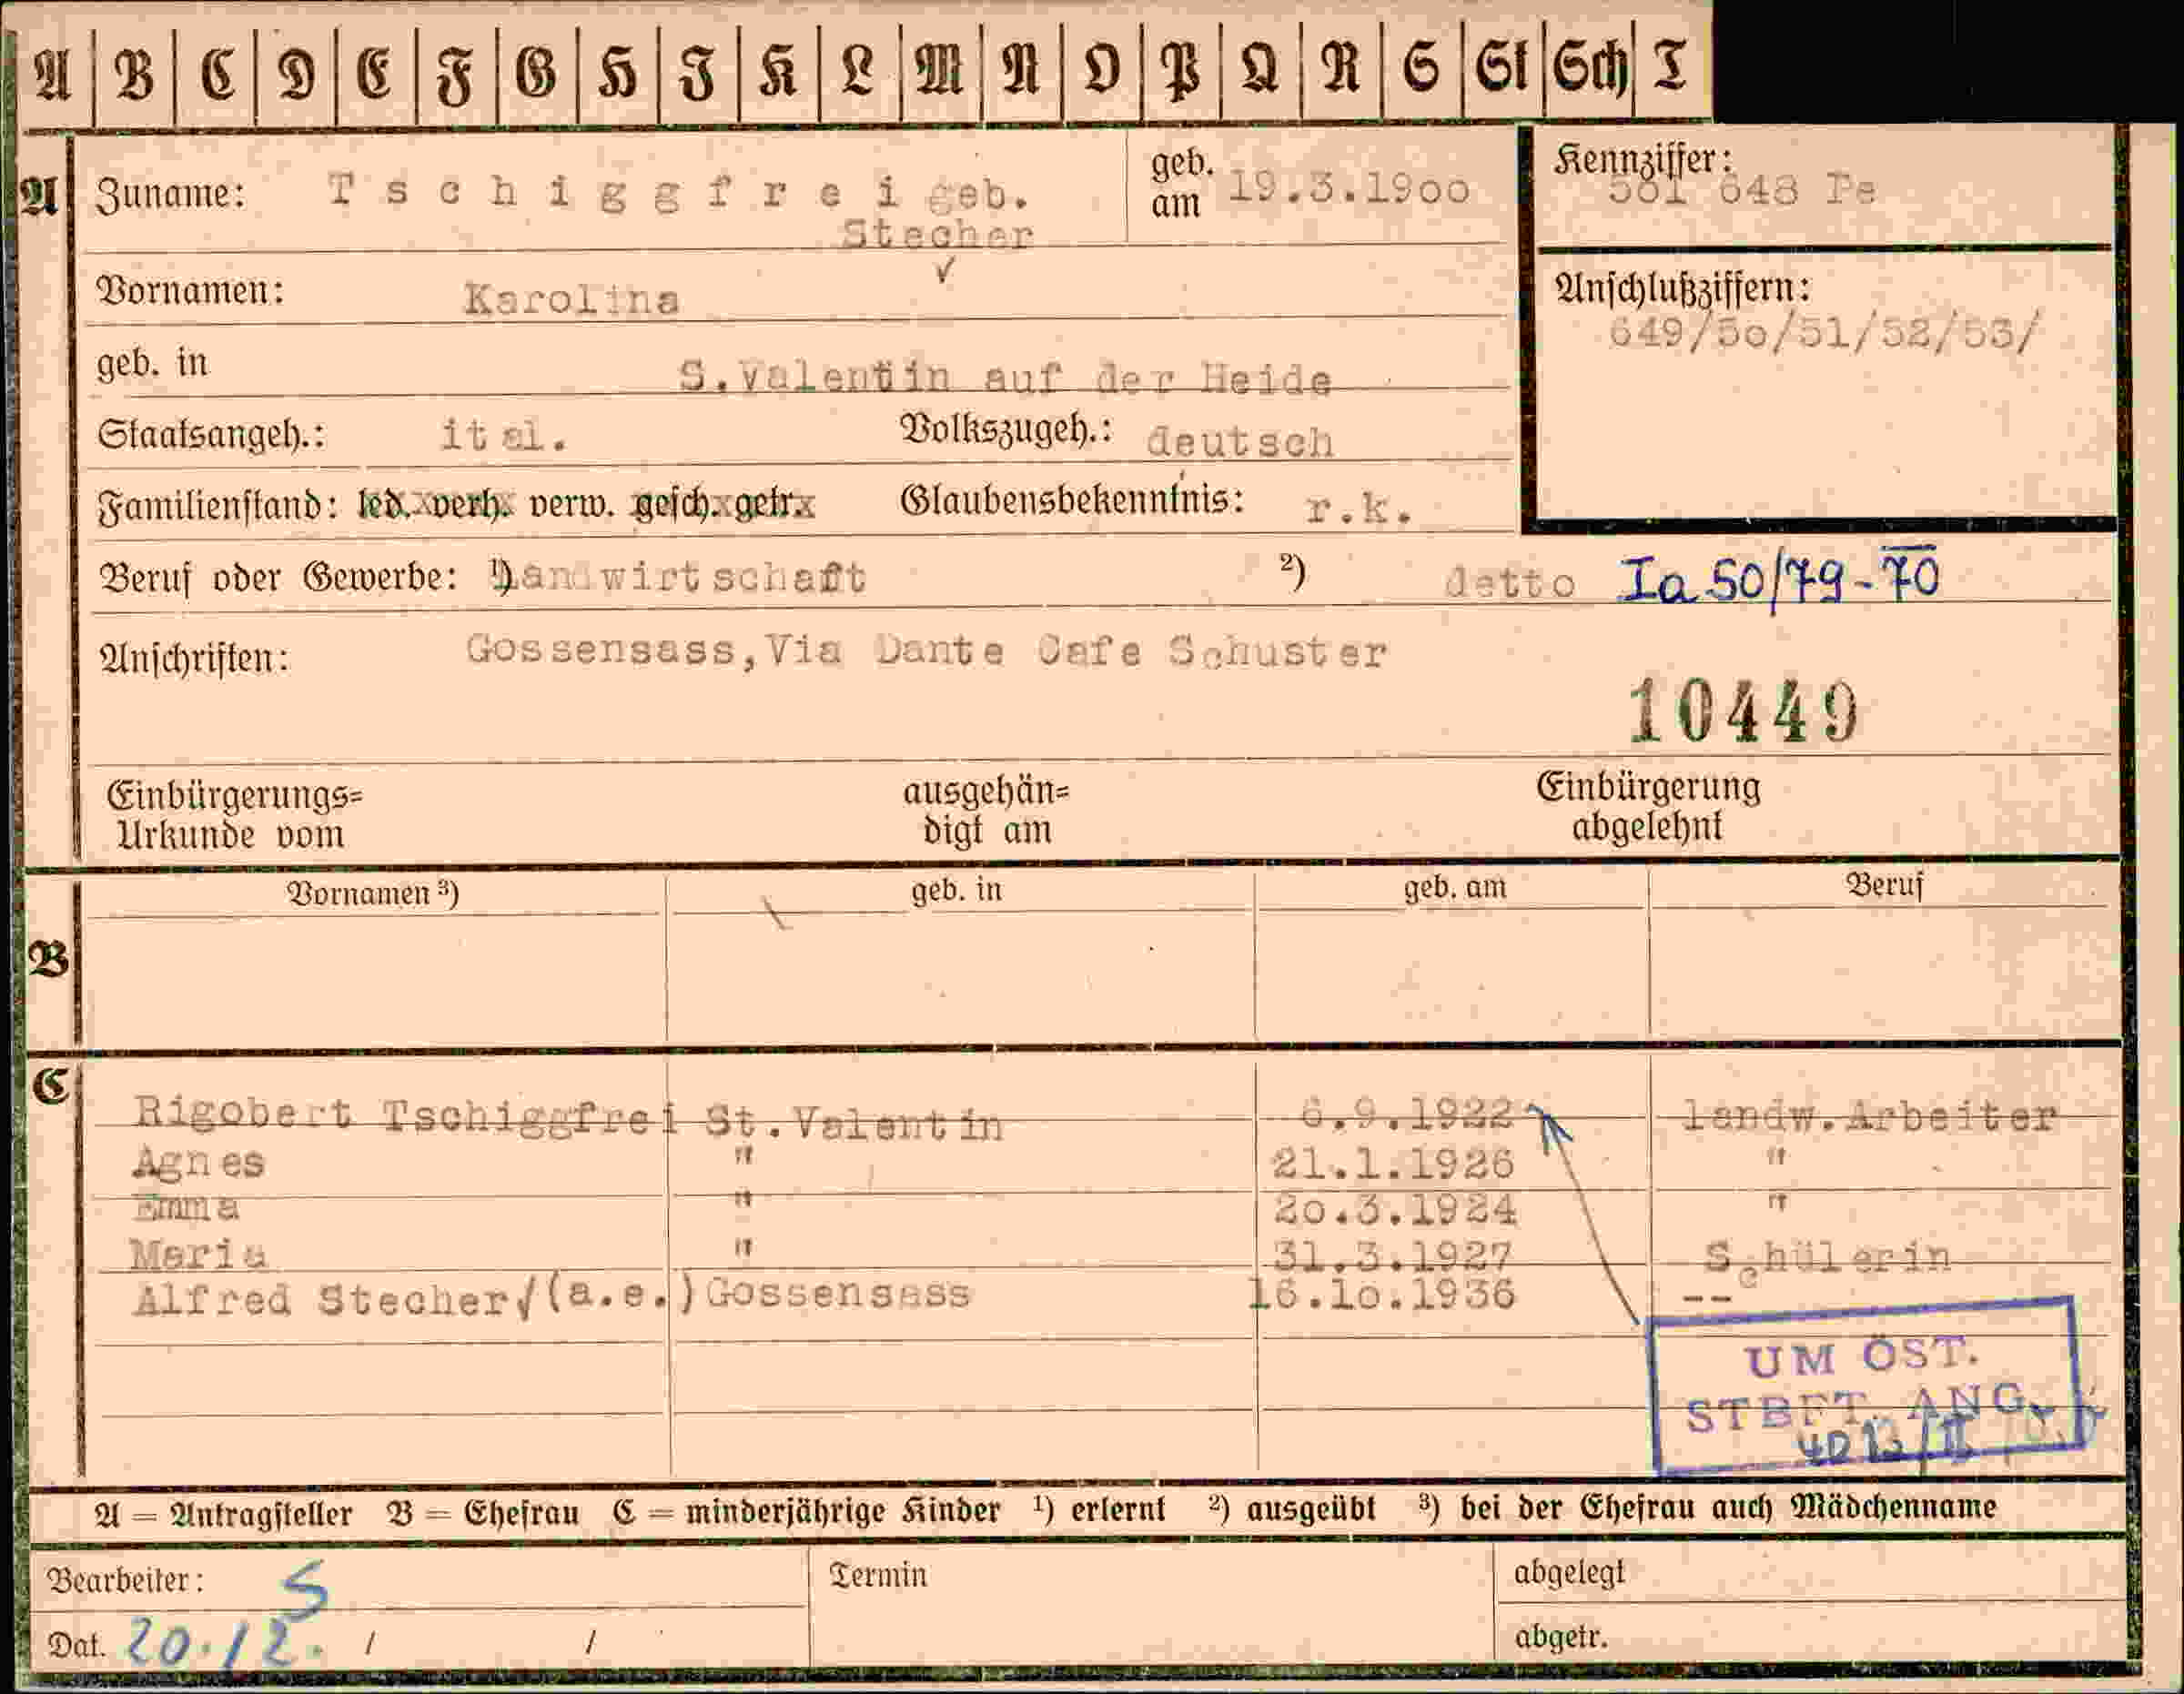 A B C D E F G H J K L M N O P Q R S St Sch T
A Zuname: Tschiggfrei geb. geb. am 19.3.1900 Kennziffer: 501 648 Pe
Stecher
Vornamen: Karolina Anschlußziffern:
649/50/51/52/53/
geb. in S.Valentin auf der Heide
Staatsangeh.: ital. Volkszugeh.: deutsch
Familienstand: led. verh. verw. gesch. getr. Glaubensbekenntnis: r.k.
Beruf oder Gewerbe: 1) Landwirtschaft 2) detto Ia 50/79-70
Anschriften: Gossensass,Via Dante Cafe Schuster
10449
Einbürgerungs= ausgehän= Einbürgerung
Urkunde vom digt am abgelehnt
Vornamen 3) geb. in geb. am Beruf
B
C
Rigobert Tschiggfrei St.Valentin 6.9.1922 landw.Arbeiter
Agnes " 21.1.1926 "
Emma " 20.3.1924 "
Maria " 31.3.1927 Schülerin
Alfred Stecher√(a.e.) Gossensass 16.10.1936 --
UM ÖST.
STBFT. ANG.
A = Antragsteller B = Ehefrau C = minderjährige Kinder 1) erlernt 2) ausgeübt 3) bei der Ehefrau auch Mädchenname
Bearbeiter: S Termin abgelegt
Dat. 20.12. / / abgetr.